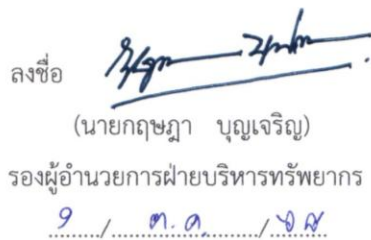 ลงชื่อ
(นายกฤษฎา บุญเจริญ)
รองผู้อำนวยการฝ่ายบริหารทรัพยากร
/ ต.ค. /